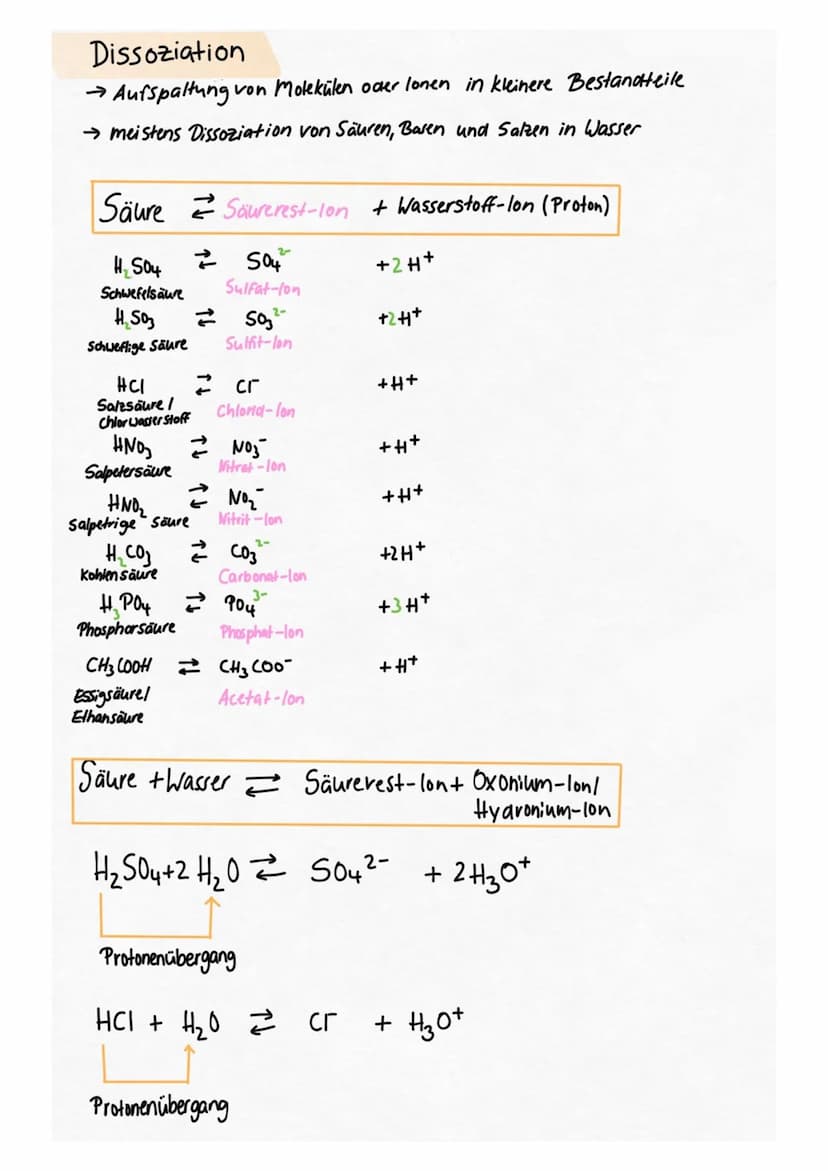 Dissoziation
→ Aufspaltung von Molekülen oder Ionen in kleinere Bestandteile
→ meistens Dissoziation von Säuren, Basen und Salzen in Wasser
Säure ⇄ Säurerest-Ion + Wasserstoff-Ion (Proton)
H₂SO₄ ⇄ SO₄²⁻ +2H⁺
Schwefelsäure Sulfat-Ion
H₂SO₃ ⇄ SO₃²⁻ +2H⁺
schweflige Säure Sulfit-Ion
HCl ⇄ Cl⁻ +H⁺
Salzsäure / Chlorid-Ion
Chlorwasserstoff
HNO₃ ⇄ NO₃⁻ +H⁺
Salpetersäure Nitrat-Ion
HNO₂ ⇄ NO₂⁻ +H⁺
salpetrige Säure Nitrit-Ion
H₂CO₃ ⇄ CO₃²⁻ +2H⁺
Kohlensäure Carbonat-Ion
H₃PO₄ ⇄ PO₄³⁻ +3H⁺
Phosphorsäure Phosphat-Ion
CH₃COOH ⇄ CH₃COO⁻ +H⁺
Essigsäure/ Acetat-Ion
Ethansäure
Säure + Wasser ⇄ Säurerest-Ion + Oxonium-Ion/
Hydronium-Ion
H₂SO₄+2 H₂O ⇄ SO₄²⁻ + 2H₃O⁺
Protonenübergang
HCl + H₂O ⇄ Cl⁻ + H₃O⁺
Protonenübergang